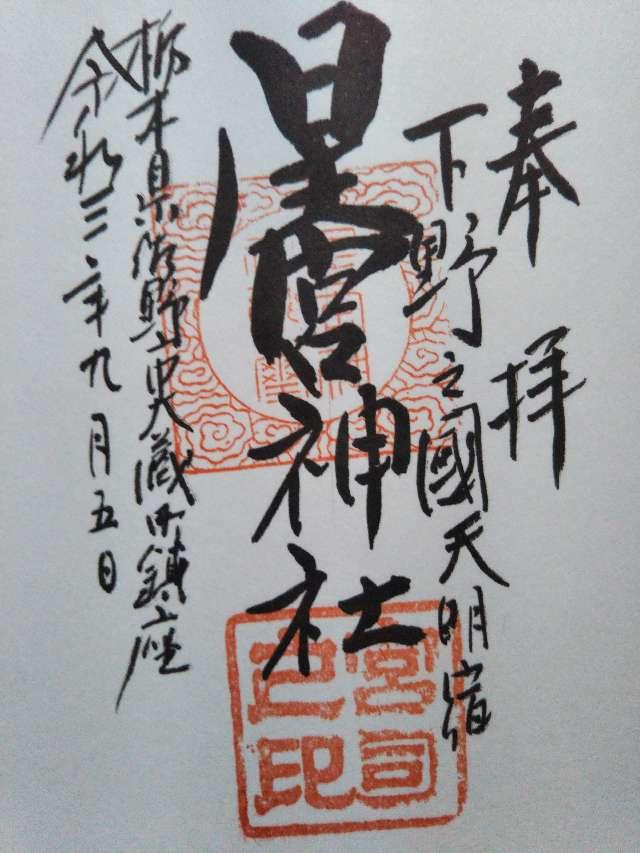 奉拝
下野之國天明宿
星宮神社
栃木県佐野市大蔵町鎮座
令和三年九月五日
宮司之印